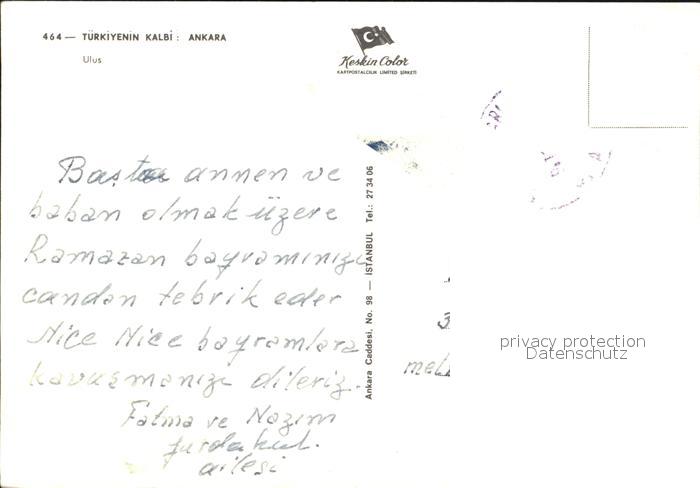 464 — TÜRKİYENİN KALBİ : ANKARA
Ulus
Keskin Color
KARTPOSTALCILIK LİMİTED ŞİRKETİ
Başta annen ve
baban olmak üzere
Ramazan bayramınızı
candan tebrik eder
Nice Nice bayramlara
kavuşmanızı dileriz.
Fatma ve Nazım
ailesi
Ankara Caddesi, No. 98 — İSTANBUL Tel.: 27 34 06
privacy protection
Datenschutz